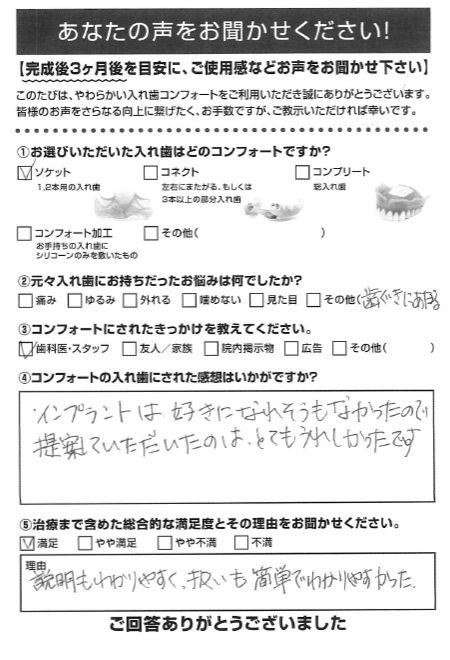 あなたの声をお聞かせください!
【完成後3ヶ月後を目安に、ご使用感などお声をお聞かせ下さい】
このたびは、やわらかい入れ歯コンフォートをご利用いただき誠にありがとうございます。
皆様のお声をさらなる向上に繋げたく、お手数ですが、ご教示いただければ幸いです。
①お選びいただいた入れ歯はどのコンフォートですか?
ソケット コネクト コンプリート
1,2本用の入れ歯 左右にまたがる、もしくは 総入れ歯
3本以上の部分入れ歯
コンフォート加工 その他( )
お手持ちの入れ歯に
シリコーンのみを敷いたもの
②元々入れ歯にお持ちだったお悩みは何でしたか?
痛み ゆるみ 外れる 噛めない 見た目 その他(歯ぐきにあたる
③コンフォートにされたきっかけを教えてください。
歯科医・スタッフ 友人/家族 院内掲示物 広告 その他( )
④コンフォートの入れ歯にされた感想はいかがですか?
インプラントは好きになれそうもなかったので
提案していただいたのは、とてもうれしかったです
⑤治療まで含めた総合的な満足度とその理由をお聞かせください。
満足 やや満足 やや不満 不満
理由
説明もわかりやすく、扱いも簡単でわかりやすかった.
ご回答ありがとうございました